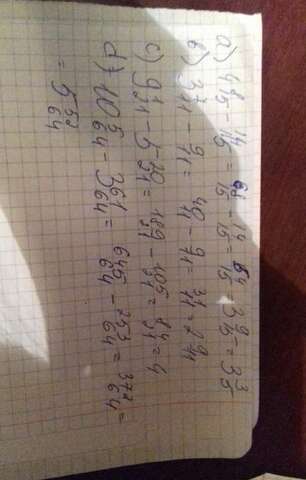 a) 4 8/15 - 14/15 = 68/15 - 14/15 = 54/15 3 9/15 = 3 3/5
в) 3 7/11 - 9/11 = 40/11 - 9/11 = 31/11 = 2 9/11
c) 9 1/21 - 5 20/21 = 189/21 - 105/21 = 84/21 = 4
d) 10 5/64 - 3 61/64 = 645/64 - 253/64 = 372/64 =
= 5 52/64